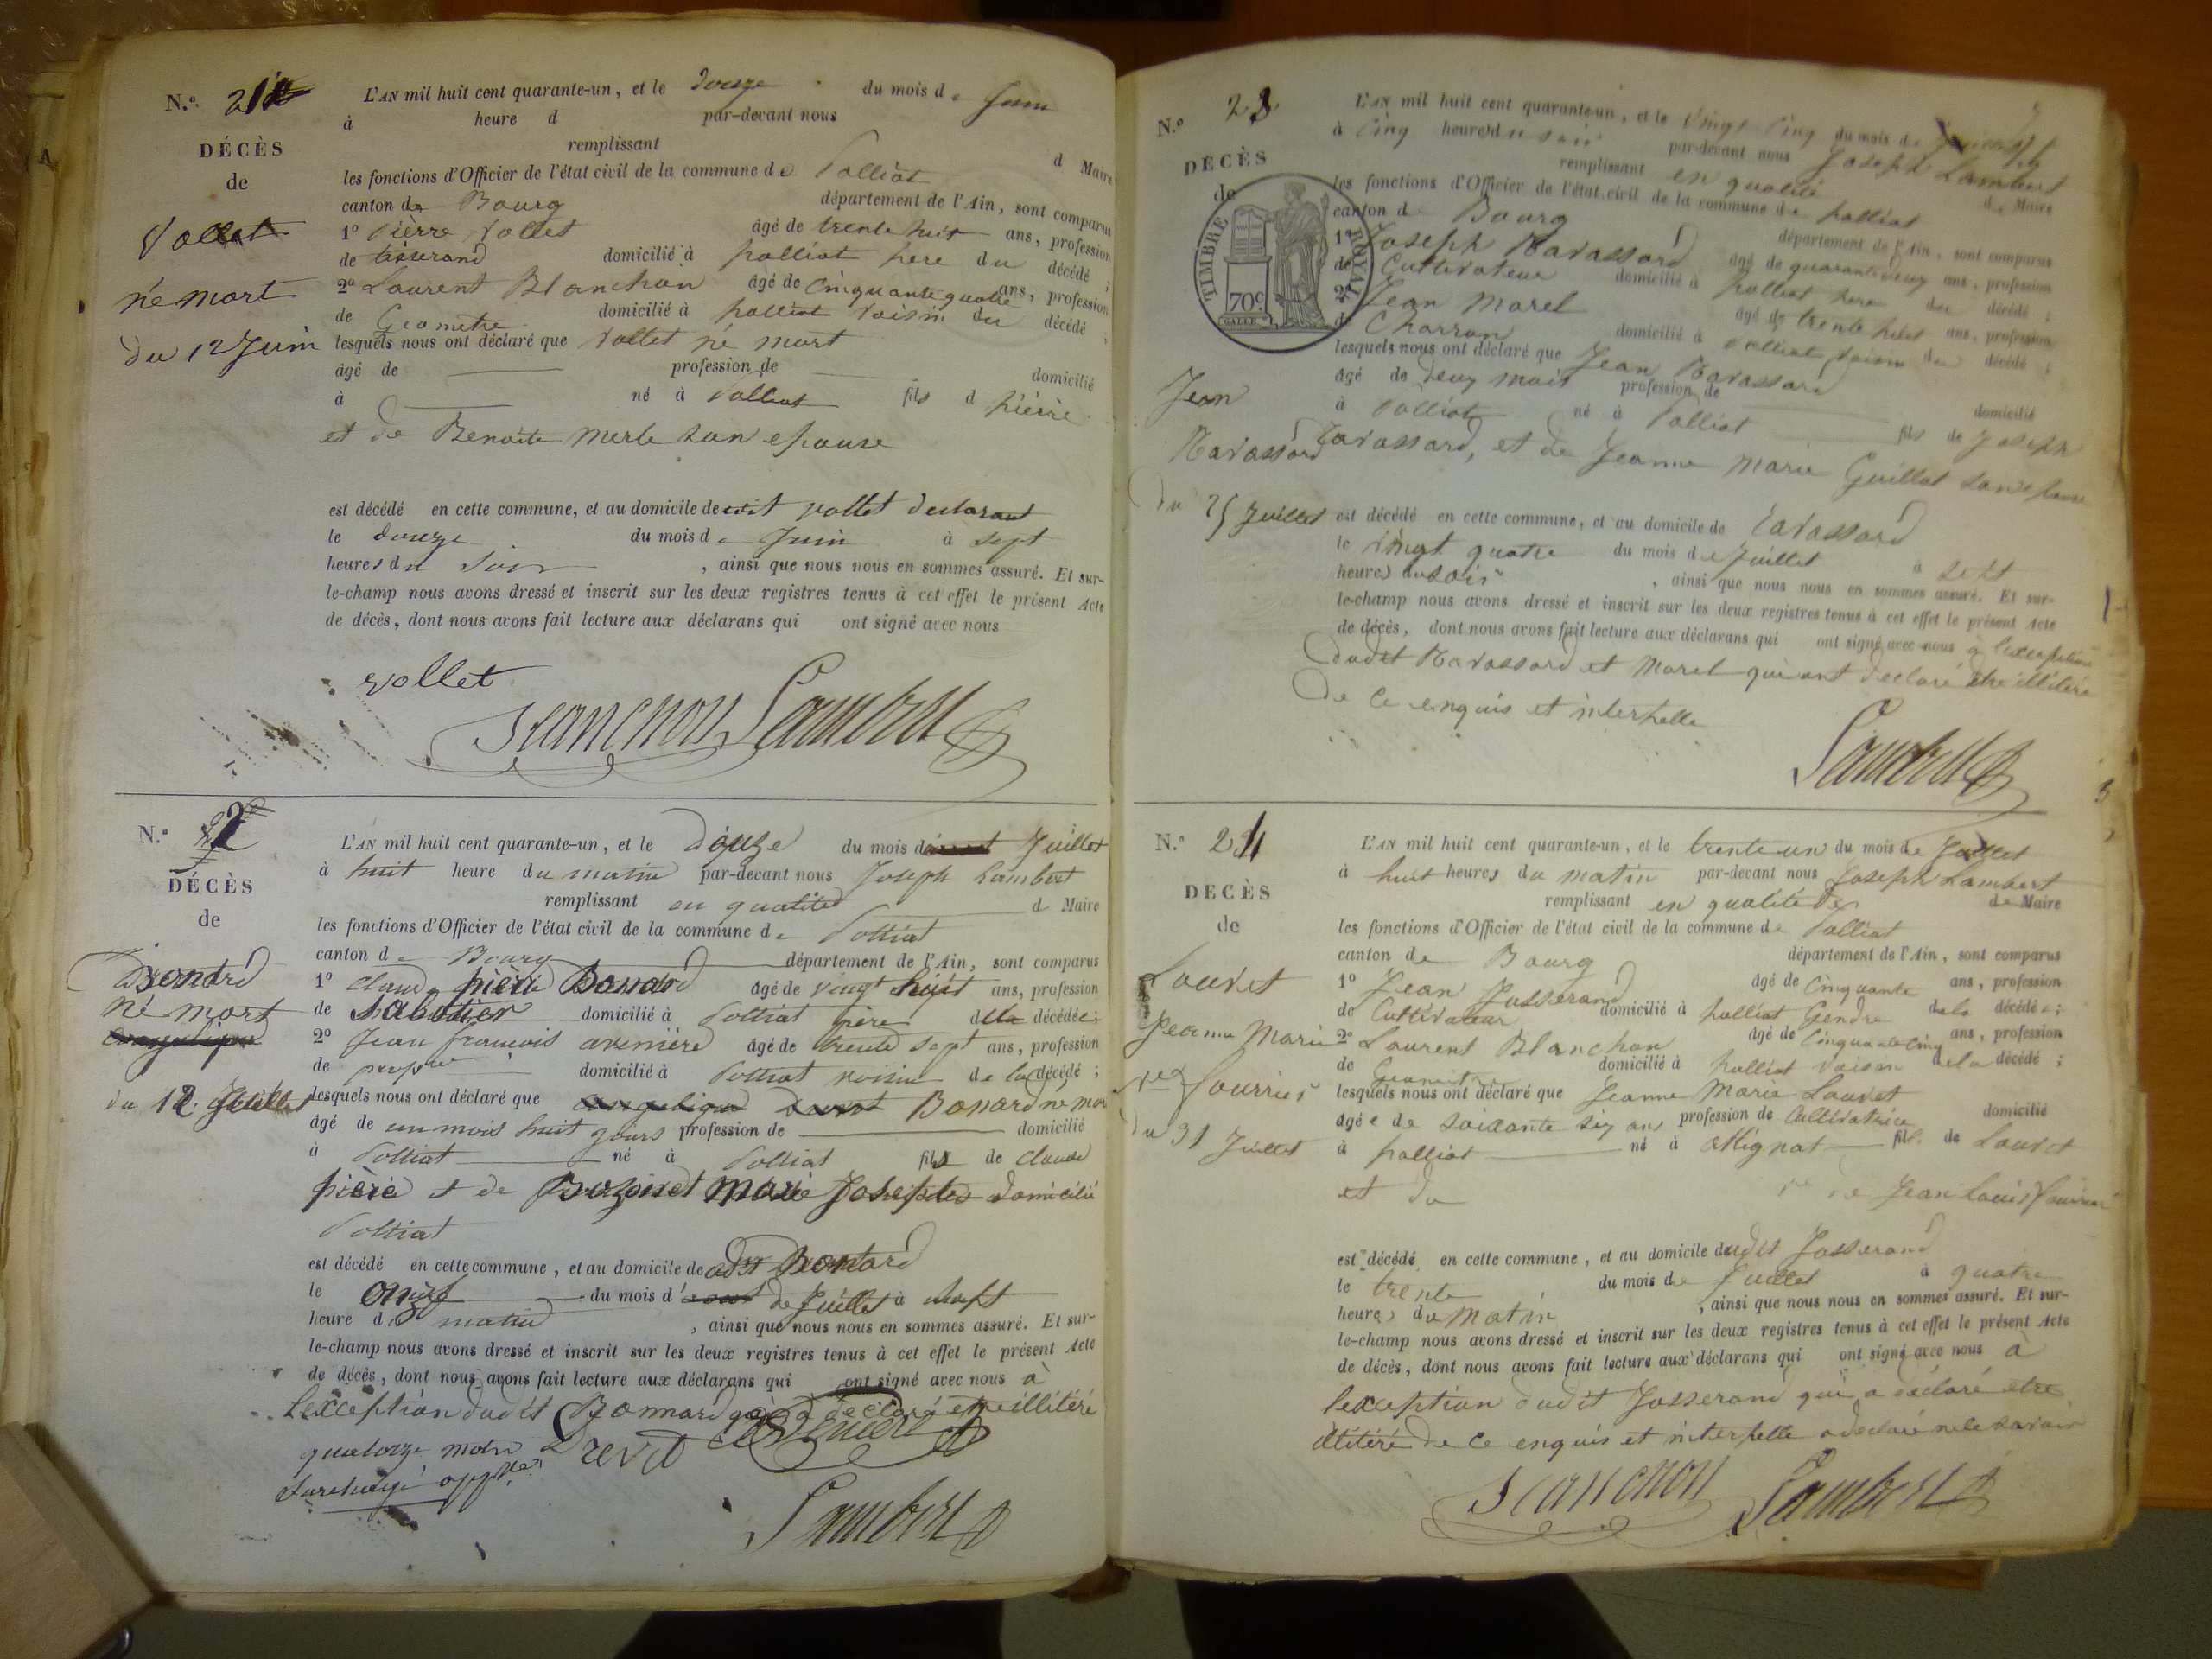 N.° 21
DÉCÈS
de
Vollet
né mort
du 12 Juin
L'AN mil huit cent quarante-un, et le douze du mois de Juin
à heure d par-devant nous
remplissant d Maire
les fonctions d'Officier de l'état civil de la commune de Polliat
canton de Bourg département de l'Ain, sont comparus
1° Pierre Vollet âgé de trente huit ans, profession
de tisserand domicilié à polliat père du décédé ;
2° Laurent Blanchon âgé de Cinquante quatre ans, profession
de Geometre domicilié à polliat Voisin du décédé ;
lesquels nous ont déclaré que Vollet né mort
âgé de profession de domicilié
à né à Polliat fils d pierre
et de Benoite Merle son epouse
est décédé en cette commune, et au domicile de dit vollet declarant
le douze du mois de Juin à sept
heures du Soir , ainsi que nous nous en sommes assuré. Et sur-
le-champ nous avons dressé et inscrit sur les deux registres tenus à cet effet le présent Acte
de décès, dont nous avons fait lecture aux déclarans qui ont signé avec nous
vollet
Blanchon Lambert
N.° 22
DÉCÈS
de
Bonard
né mort
du 12 Juillet
L'AN mil huit cent quarante-un, et le douze du mois de Juillet
à huit heure du matin par-devant nous Joseph Lambert
remplissant en qualité d Maire
les fonctions d'Officier de l'état civil de la commune de Polliat
canton de Bourg département de l'Ain, sont comparus
1° claude pierre Bonard âgé de vingt huit ans, profession
de sabotier domicilié à Polliat père décédé ;
2° Jean françois âgé de trente sept ans, profession
de domicilié à Polliat voisin de la décédé ;
lesquels nous ont déclaré que Bonard né mort
âgé de un mois huit jours profession de domicilié
à Polliat né à Polliat fils de claude
pierre et de Marie Josephte domicilié
Polliat
est décédé en cette commune, et au domicile de dit Bonard
le onze du mois de Juillet à
heure du matin , ainsi que nous nous en sommes assuré. Et sur-
le-champ nous avons dressé et inscrit sur les deux registres tenus à cet effet le présent Acte
de décès, dont nous avons fait lecture aux déclarans qui ont signé avec nous à
Lexception dudit Bonnard qui a declaré etre illitéré
quatorze mots
surchargé
Lambert
N.° 23
DÉCÈS
de
TIMBRE ROYAL
70c
Jean
Ravassard
Du 25 Juillet
L'AN mil huit cent quarante-un, et le Vingt Cinq du mois de Juillet
à Cinq heures du soir par-devant nous Joseph Lambert
remplissant en qualité de Maire
les fonctions d'Officier de l'état civil de la commune de polliat
canton de Bourg département de l'Ain, sont comparus
1° Joseph Ravassard âgé de quarante deux ans, profession
de Cultivateur domicilié à polliat père du décédé ;
2° Jean Morel âgé de trente huit ans, profession
de Charron domicilié à Polliat Voisin du décédé ;
lesquels nous ont déclaré que Jean Ravassard
âgé de deux mois profession de domicilié
à Polliat né à Polliat fils de Joseph
Ravassard, et de Jeanne Marie Guillot son epouse
est décédé en cette commune, et au domicile de Ravassard
le vingt quatre du mois de Juillet à sept
heures du soir , ainsi que nous nous en sommes assuré. Et sur-
le-champ nous avons dressé et inscrit sur les deux registres tenus à cet effet le présent Acte
de décès, dont nous avons fait lecture aux déclarans qui ont signé avec nous à Lexception
dudit Ravassard et Morel qui ont declaré être illitéré
de ce enquis et interpelle
Lambert
N.° 24
DÉCÈS
de
Louvet
Jeanne Marie
du 31 Juillet
L'AN mil huit cent quarante-un, et le trente-un du mois de Juillet
à huit heures du matin par-devant nous Joseph Lambert
remplissant en qualité de Maire
les fonctions d'Officier de l'état civil de la commune de Polliat
canton de Bourg département de l'Ain, sont comparus
1° Jean Josserand âgé de Cinquante ans, profession
de Cultivateur domicilié à polliat Gendre de la décédée ;
2° Laurent Blanchon âgé de Cinquante cinq ans, profession
de Geometre domicilié à polliat Voisin de la décédé ;
lesquels nous ont déclaré que Jeanne Marie Louvet
âgée de soixante six ans profession de Cultivatrice domicilié
à polliat né à Attignat fil de Louvet
et de de Jean Louis
est décédé en cette commune, et au domicile dudit Josserand
le trente du mois de Juillet à quatre
heures du Matin , ainsi que nous nous en sommes assuré. Et sur-
le-champ nous avons dressé et inscrit sur les deux registres tenus à cet effet le présent Acte
de décès, dont nous avons fait lecture aux déclarans qui ont signé avec nous à
lexception dudit Josserand qui a déclaré etre
illitéré de ce enquis et interpelle a declaré ne le savoir
Blanchon Lambert